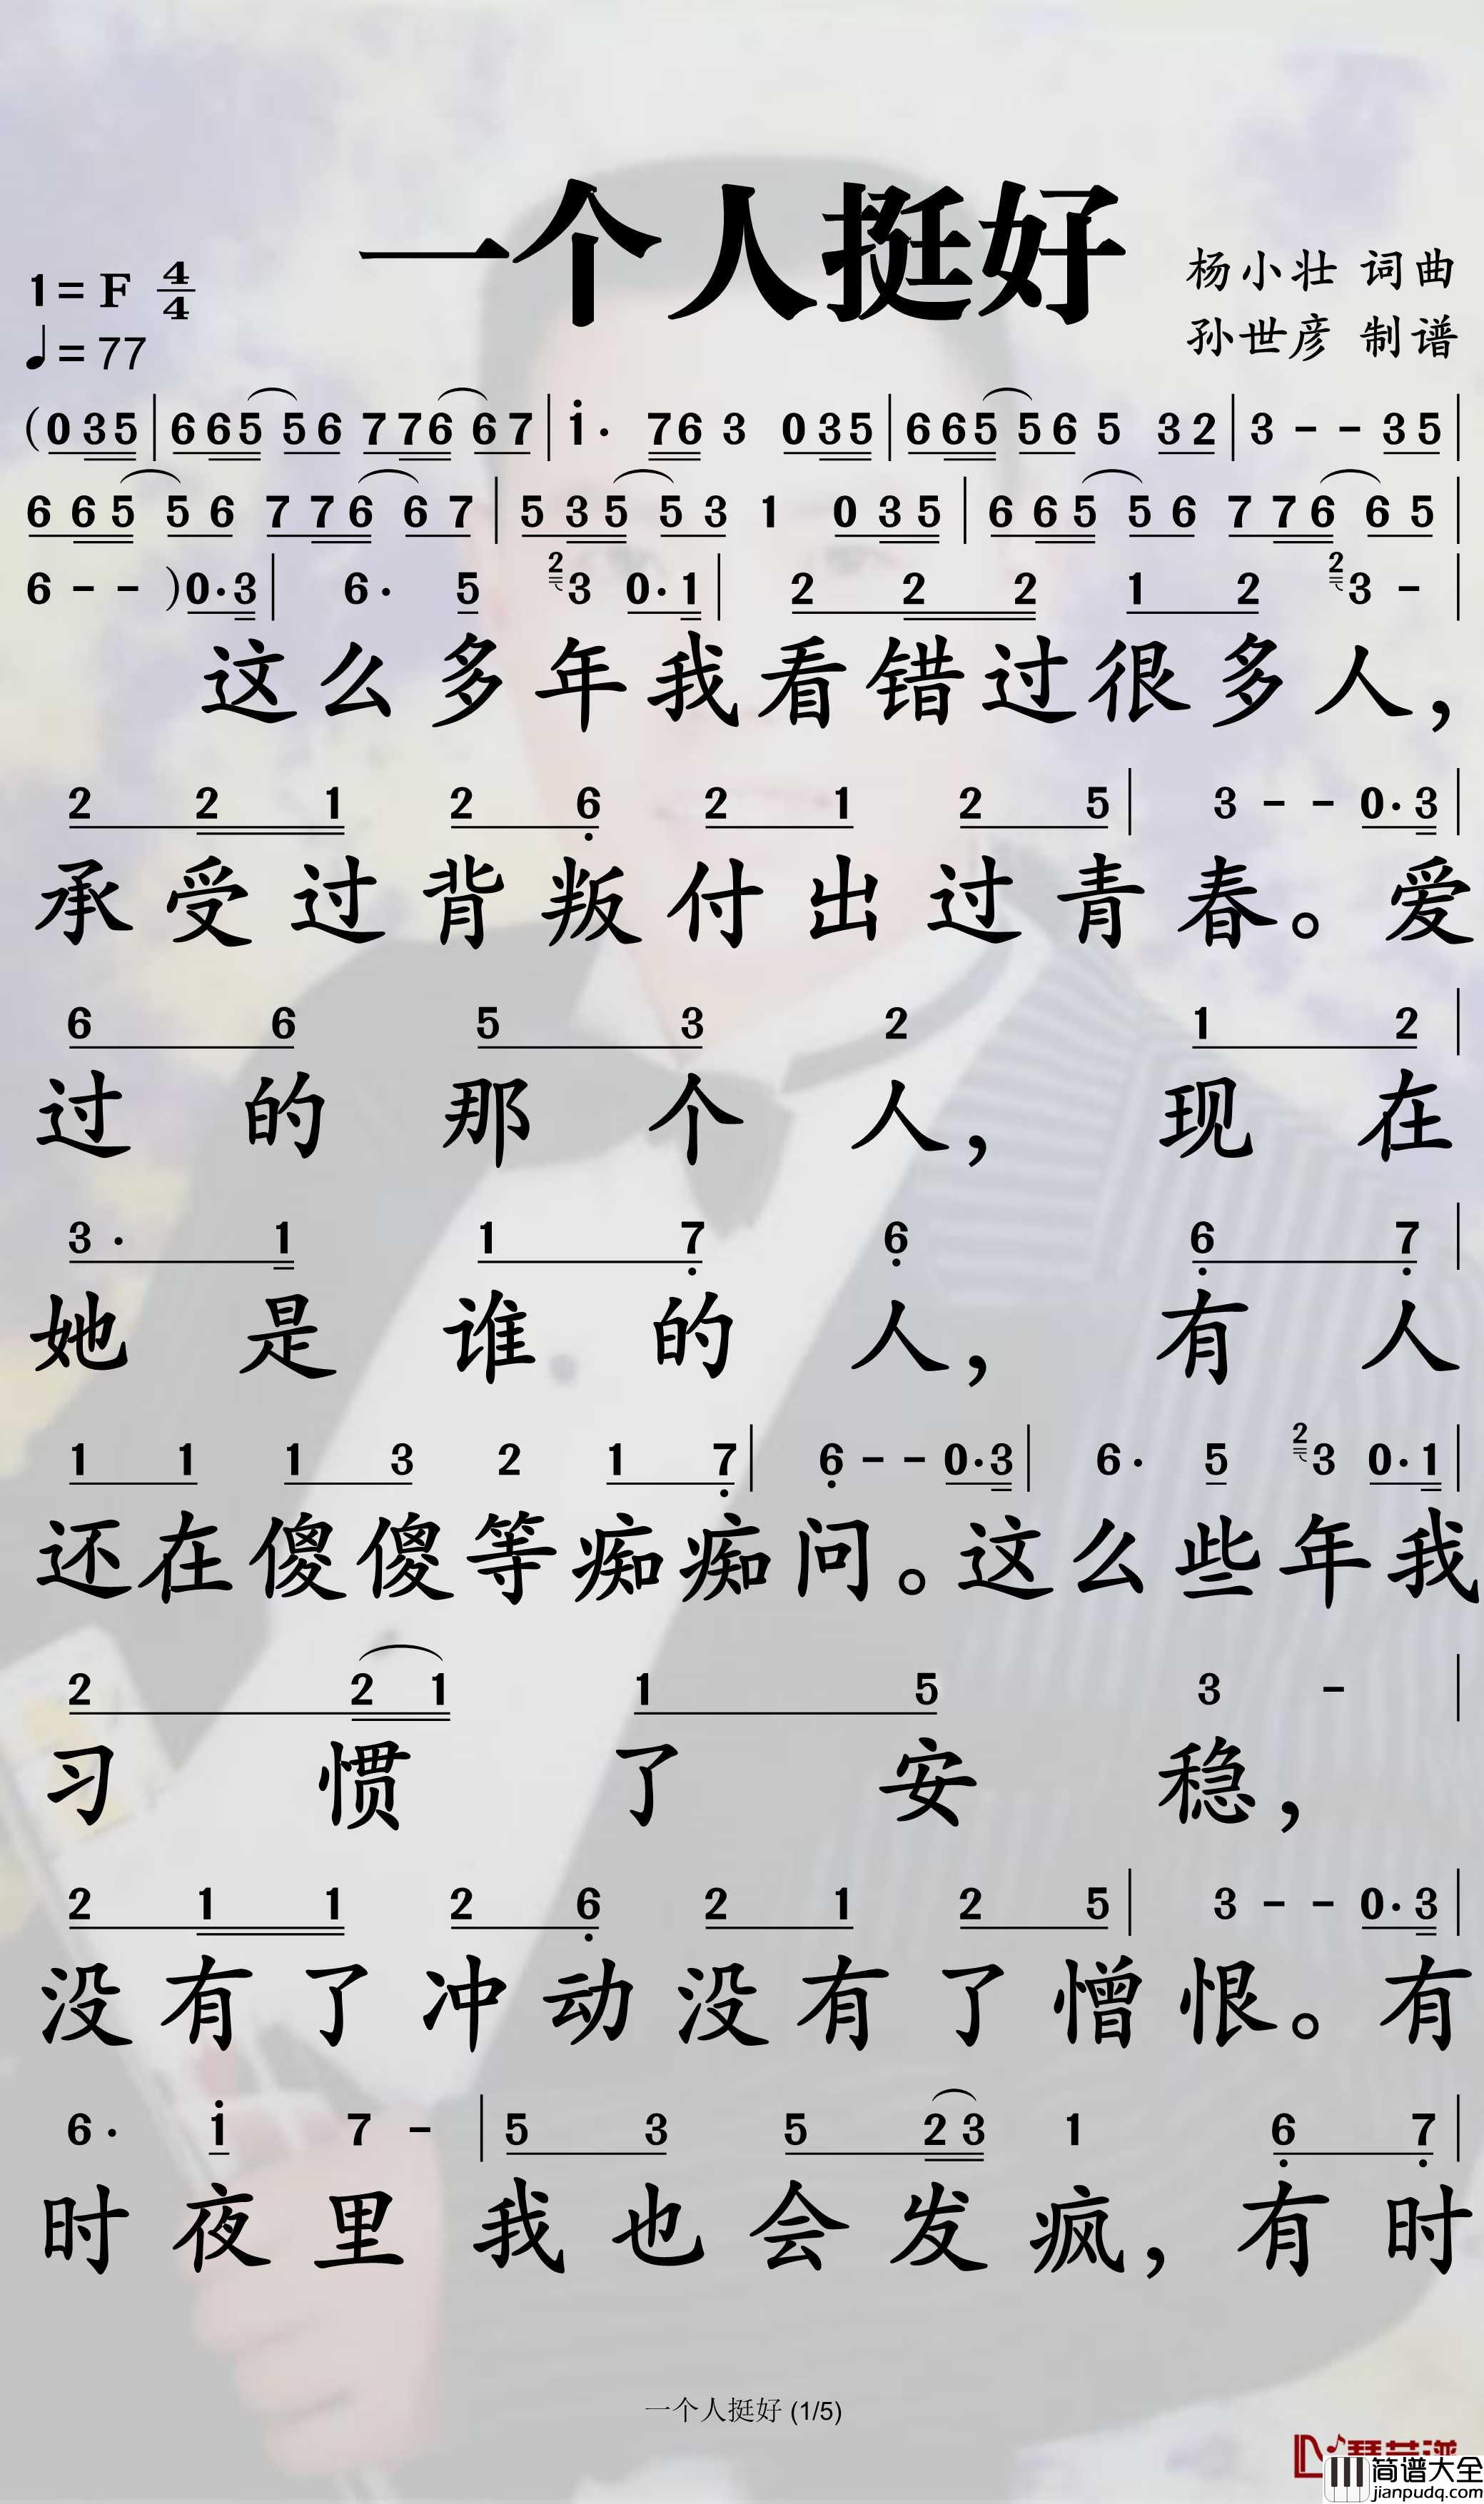 一个人挺好
1=F 4/4
♩=77
杨小壮 词曲
孙世彦 制谱
(0 3 5 | 6 6 5 5 6 7 7 6 6 7 | i· 7 6 3 0 3 5 | 6 6 5 5 6 5 3 2 | 3 - - 3 5 |
6 6 5 5 6 7 7 6 6 7 | 5 3 5 5 3 1 0 3 5 | 6 6 5 5 6 7 7 6 6 5 |
6 - - )0·3 | 6· 5 2 3 0·1 | 2 2 2 1 2 2 3 - |
这么多年我看错过很多人,
2 2 1 2 6̣ 2 1 2 5 | 3 - - 0·3 |
承受过背叛付出过青春。爱
6 6 5 3 2 1 2 |
过的那个人,现在
3· 1 1 7̣ 6̣ 6̣ 7̣ |
她是谁的人,有人
1 1 1 3 2 1 7̣ | 6̣ - - 0·3 | 6· 5 2 3 0·1 |
还在傻傻等痴痴问。这么些年我
2 2 1 1 5 3 - |
习惯了安稳,
2 1 1 2 6̣ 2 1 2 5 | 3 - - 0·3 |
没有了冲动没有了憎恨。有
6· i 7 - | 5 3 5 2 3 1 6̣ 7̣ |
时夜里我也会发疯,有时
一个人挺好 (1/5)
简谱大全
jianpudq.com